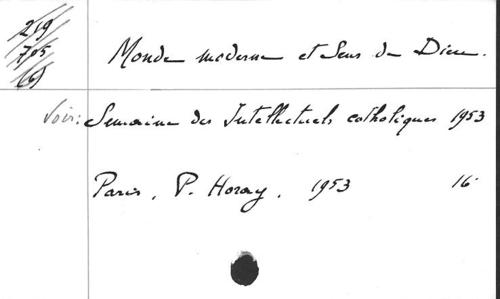 219
705
(6)
Monde moderne et Sens de Dieu.
Voir: Semaine des Intellectuels catholiques 1953
Paris, P. Horay, 1953 16°